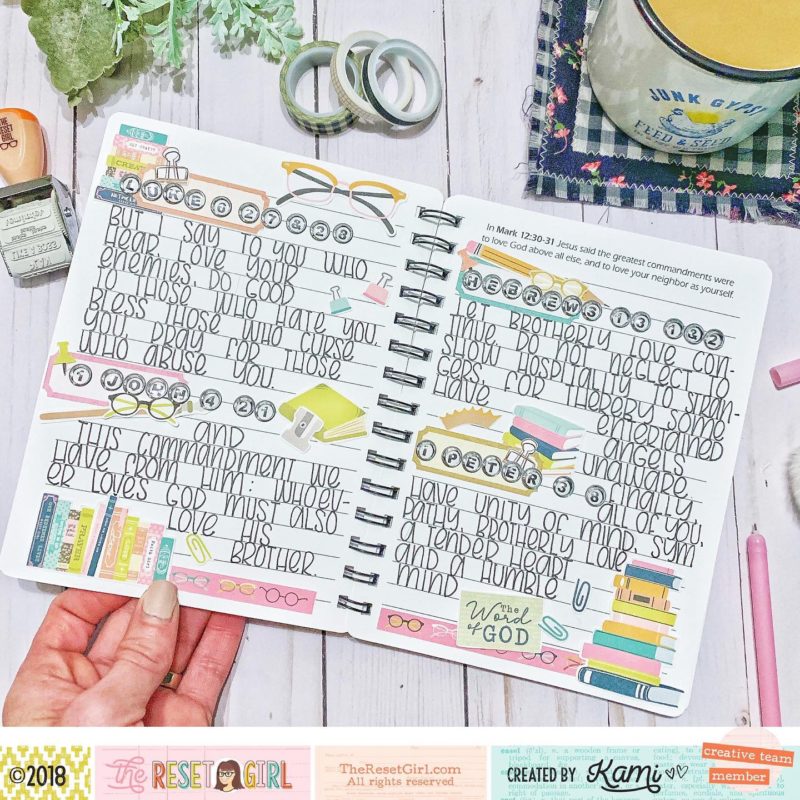 THE RESET GIRL
JUNK GYPSY
FEED & SEED
LUKE 6 27 & 28
BUT I SAY TO YOU WHO
HEAR, LOVE YOUR
ENEMIES, DO GOOD
TO THOSE WHO HATE YOU,
BLESS THOSE WHO CURSE
YOU, PRAY FOR THOSE
WHO ABUSE YOU.
1 JOHN 4 21
AND
THIS COMMANDMENT WE
HAVE FROM HIM: WHOEV-
ER LOVES GOD MUST ALSO
LOVE HIS
BROTHER.
In Mark 12:30-31 Jesus said the greatest commandments were
to love God above all else, and to love your neighbor as yourself.
HEBREWS 13 1&2
LET BROTHERLY LOVE CON-
TINUE. DO NOT NEGLECT TO
SHOW HOSPITALITY TO STRAN-
GERS, FOR THEREBY SOME
HAVE ENTERTAINED
ANGELS
UNAWARE
1 PETER 3 8
FINALLY,
ALL OF YOU,
HAVE UNITY OF MIND, SYM-
PATHY, BROTHERLY LOVE,
A TENDER HEART,
AND A HUMBLE
MIND.
The Word of GOD
©2018
The RESET GIRL
TheResetGirl.com
All rights reserved
CREATED BY Kami
creative team
member